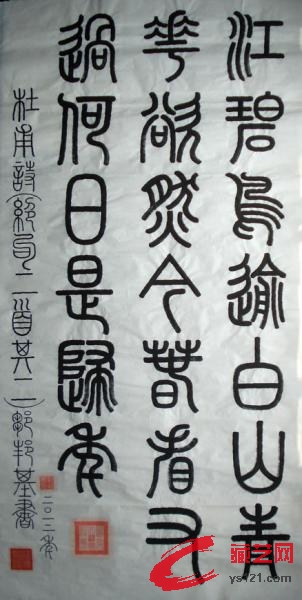 江碧鳥逾白山青
花欲然今春看又
過何日是歸年
杜甫詩(絕句二首其二)鄒邦基書
藏艺网
ys121.com